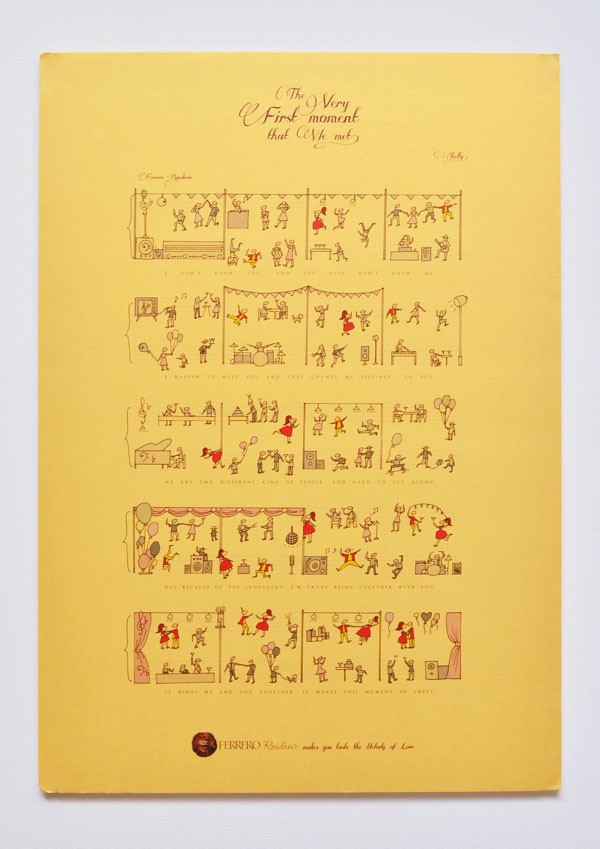 The Very
First moment
that We met
Jolly
Ferrero Rondnoir
I DON'T KNOW YOU AND YOU ALSO DON'T KNOW ME
I HAPPEN TO MEET YOU AND THAT CHANGE MY FEELINGS TO YOU
WE ARE TWO DIFFERENT KIND OF PEOPLE, AND HARD TO GET ALONG
BUT BECAUSE OF THE INDULGENT, I'M CRAZY BEING TOGETHER WITH YOU
IT BINDS ME AND YOU TOGETHER, IT MAKES THIS MOMENT SO SWEET
FERRERO Rondnoir makes you taste the Melody of Love